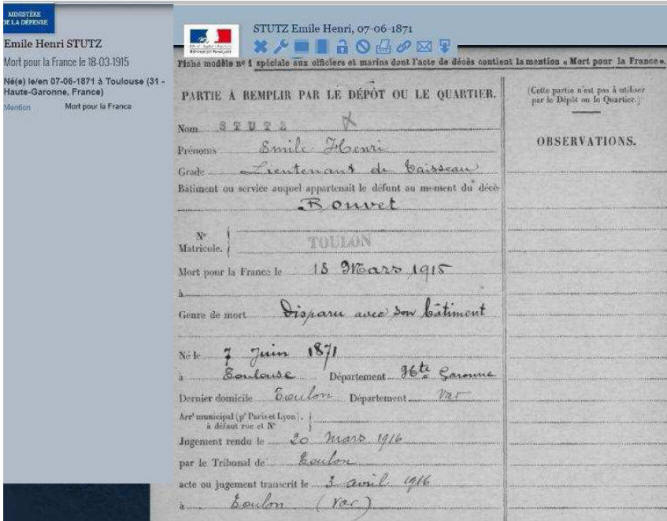 MINISTÈRE
DE LA DÉFENSE
Emile Henri STUTZ
Mort pour la France le 18-03-1915
Né(e) le/en 07-06-1871 à Toulouse (31 -
Haute-Garonne, France)
Mention Mort pour la France
STUTZ Emile Henri, 07-06-1871
Fiche modèle nº 1 spéciale aux officiers et marins dont l'acte de décès contient la mention « Mort pour la France ».
PARTIE A REMPLIR PAR LE DÉPÔT OU LE QUARTIER.
Nom STUTZ
Prénoms Emile Henri
Grade Lieutenant de Vaisseau
Bâtiment ou service auquel appartenait le défunt au moment du décè
Bouvet
Nº
Matricule. TOULON
Mort pour la France le 18 Mars 1915
à
Genre de mort Disparu avec son bâtiment
Né le 7 Juin 1871
à Toulouse Département Hte Garonne
Dernier domicile Toulon Département Var
Arrt municipal (pr Paris et Lyon).
à défaut rue et Nº
Jugement rendu le 20 Mars 1916
par le Tribunal de Toulon
acte ou jugement transcrit le 3 avril 1916
à Toulon (Var)
(Cette partie n'est pas à utiliser
par le Dépôt ou le Quartier.)
OBSERVATIONS.